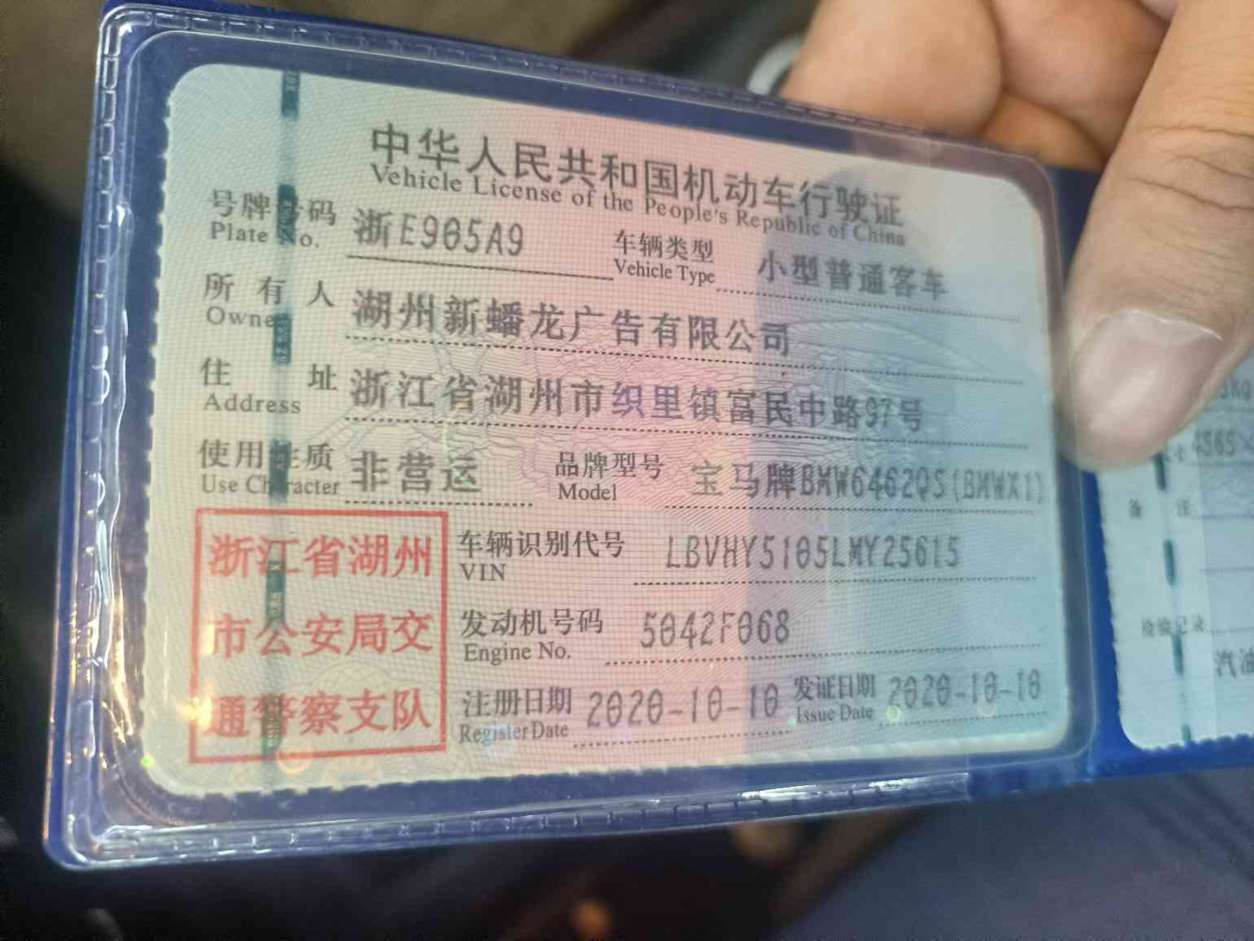 中华人民共和国机动车行驶证
Vehicle License of the People's Republic of China
号牌号码 浙E905A9 车辆类型 小型普通客车
Plate No. Vehicle Type
所有人 湖州新蟠龙广告有限公司
Owner
住址 浙江省湖州市织里镇富民中路97号
Address
使用性质 非营运 品牌型号 宝马牌BMW6462QS(BMWX1)
Use Character Model
浙江省湖州
市公安局交
通警察支队
车辆识别代号 LBVHY5105LMY25615
VIN
发动机号码 5042F068
Engine No.
注册日期 2020-10-10 发证日期 2020-10-10
Register Date Issue Date
备注
检验记录